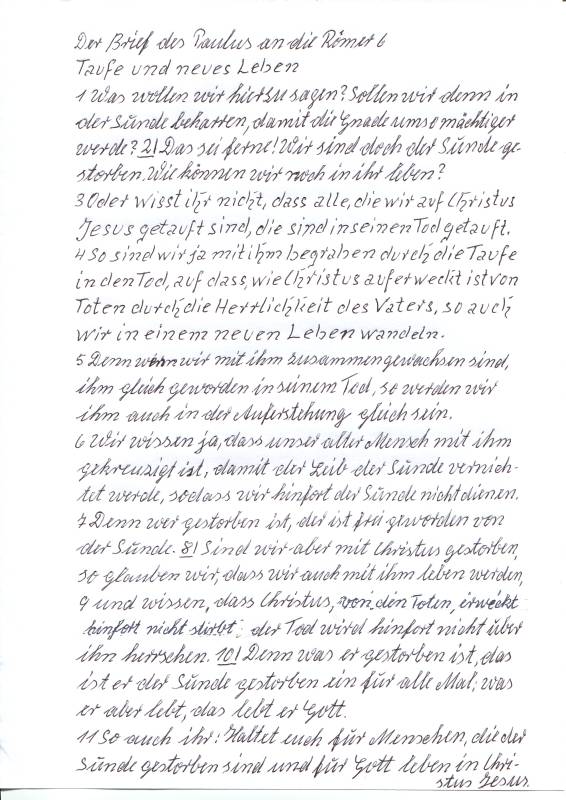 Der Brief des Paulus an die Römer 6
Taufe und neues Leben
1 Was wollen wir hierzu sagen? Sollen wir denn in
der Sünde beharren, damit die Gnade umso mächtiger
werde? 2! Das sei ferne! Wir sind doch der Sünde ge-
storben. Wie können wir noch in ihr leben?
3 Oder wisst ihr nicht, dass alle, die wir auf Christus
Jesus getauft sind, die sind in seinen Tod getauft.
4 So sind wir ja mit ihm begraben durch die Taufe
in den Tod, auf dass, wie Christus auferweckt ist von
Toten durch die Herrlichkeit des Vaters, so auch
wir in einem neuen Leben wandeln.
5 Denn wenn wir mit ihm zusammengewachsen sind,
ihm gleich geworden in seinem Tod, so werden wir
ihm auch in der Auferstehung gleich sein.
6 Wir wissen ja, dass unser alter Mensch mit ihm
gekreuzigt ist, damit der Leib der Sünde vernich-
tet werde, sodass wir hinfort der Sünde nicht dienen.
7 Denn wer gestorben ist, der ist frei geworden von
der Sünde. 8! Sind wir aber mit Christus gestorben,
so glauben wir, dass wir auch mit ihm leben werden,
9 und wissen, dass Christus, von den Toten, erweckt
hinfort nicht stirbt; der Tod wird hinfort nicht über
ihn herrschen. 10! Denn was er gestorben ist, das
ist er der Sünde gestorben ein für alle Mal; was
er aber lebt, das lebt er Gott.
11 So auch ihr: Haltet euch für Menschen, die der
Sünde gestorben sind und für Gott leben in Chri-
stus Jesus.